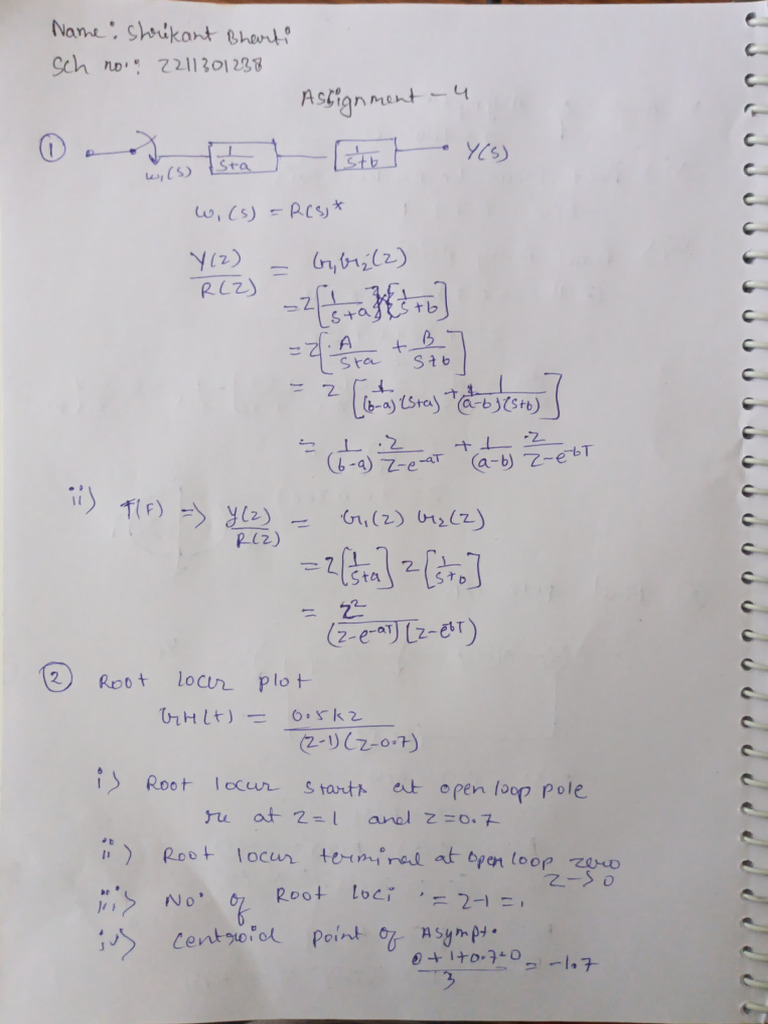 Name: Shrikant Bharti
Sch no.: 2211301238
Assignment - 4
① 1/(s+a) 1/(s+b) Y(s)
w₁(s)
w₁(s) = R(s)*
Y(z)/R(z) = G₁G₂(z)
= z[1/(s+a)][1/(s+b)]
= z[A/(s+a) + B/(s+b)]
= z[1/((b-a)(s+a)) + 1/((a-b)(s+b))]
= 1/(b-a) · z/(z-e^-aT) + 1/(a-b) · z/(z-e^-bT)
ii) T(F) => Y(z)/R(z) = G₁(z) G₂(z)
= z[1/(s+a)] z[1/(s+b)]
= z²/((z-e^-aT)(z-e^-bT))
② Root locus plot
GH(t) = 0.5kz/((z-1)(z-0.7))
i) Root locus starts at open loop pole
ie at z=1 and z=0.7
ii) Root locus terminal at open loop zero
z->0
iii) No. of Root Loci = 2-1 = 1
iv) Centroid point of Asympt.
(0+1+0.7-0)/3 = -1.7